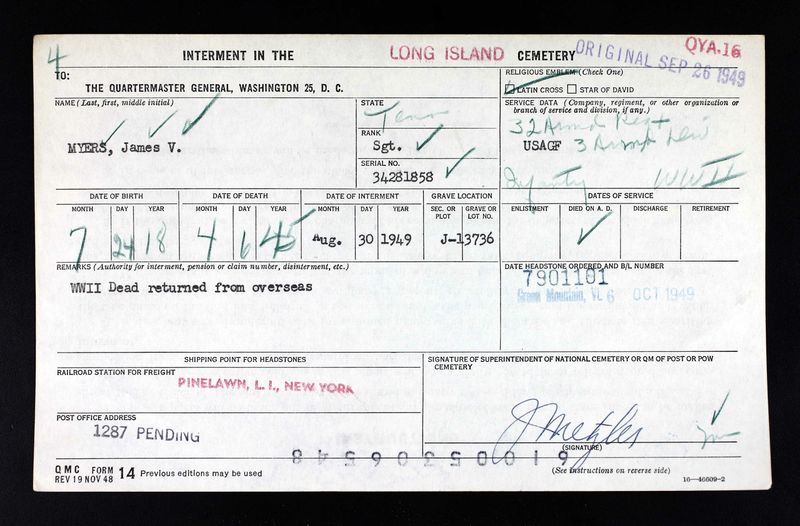 4
INTERMENT IN THE LONG ISLAND CEMETERY
ORIGINAL SEP 26 1949
QYA.16
TO:
THE QUARTERMASTER GENERAL, WASHINGTON 25, D. C.
RELIGIOUS EMBLEM (Check One)
LATIN CROSS STAR OF DAVID
NAME (Last, first, middle initial)
MYERS, James V.
STATE
Tenn
RANK
Sgt.
SERIAL NO.
34281858
SERVICE DATA (Company, regiment, or other organization or
branch of service and division, if any.)
32 Armd Regt
USAGF 3 Armd Div
Infantry WW II
DATE OF BIRTH
MONTH DAY YEAR
7 24 18
DATE OF DEATH
MONTH DAY YEAR
4 6 45
DATE OF INTERMENT
MONTH DAY YEAR
Aug. 30 1949
GRAVE LOCATION
SEC. OR PLOT
GRAVE OR LOT NO.
J-13736
DATES OF SERVICE
ENLISTMENT DIED ON A. D. DISCHARGE RETIREMENT
REMARKS (Authority for interment, pension or claim number, disinterment, etc.)
WWII Dead returned from overseas
DATE HEADSTONE ORDERED AND B/L NUMBER
7901101
Green Mountain, Vt. 6 OCT 1949
SHIPPING POINT FOR HEADSTONES
RAILROAD STATION FOR FREIGHT
PINELAWN, L. I., NEW YORK
POST OFFICE ADDRESS
1287 PENDING
SIGNATURE OF SUPERINTENDENT OF NATIONAL CEMETERY OR QM OF POST OR POW
CEMETERY
J Metzler
(SIGNATURE)
610053906548
QMC FORM 14 Previous editions may be used
REV 19 NOV 48
(See instructions on reverse side)
16—46609-2